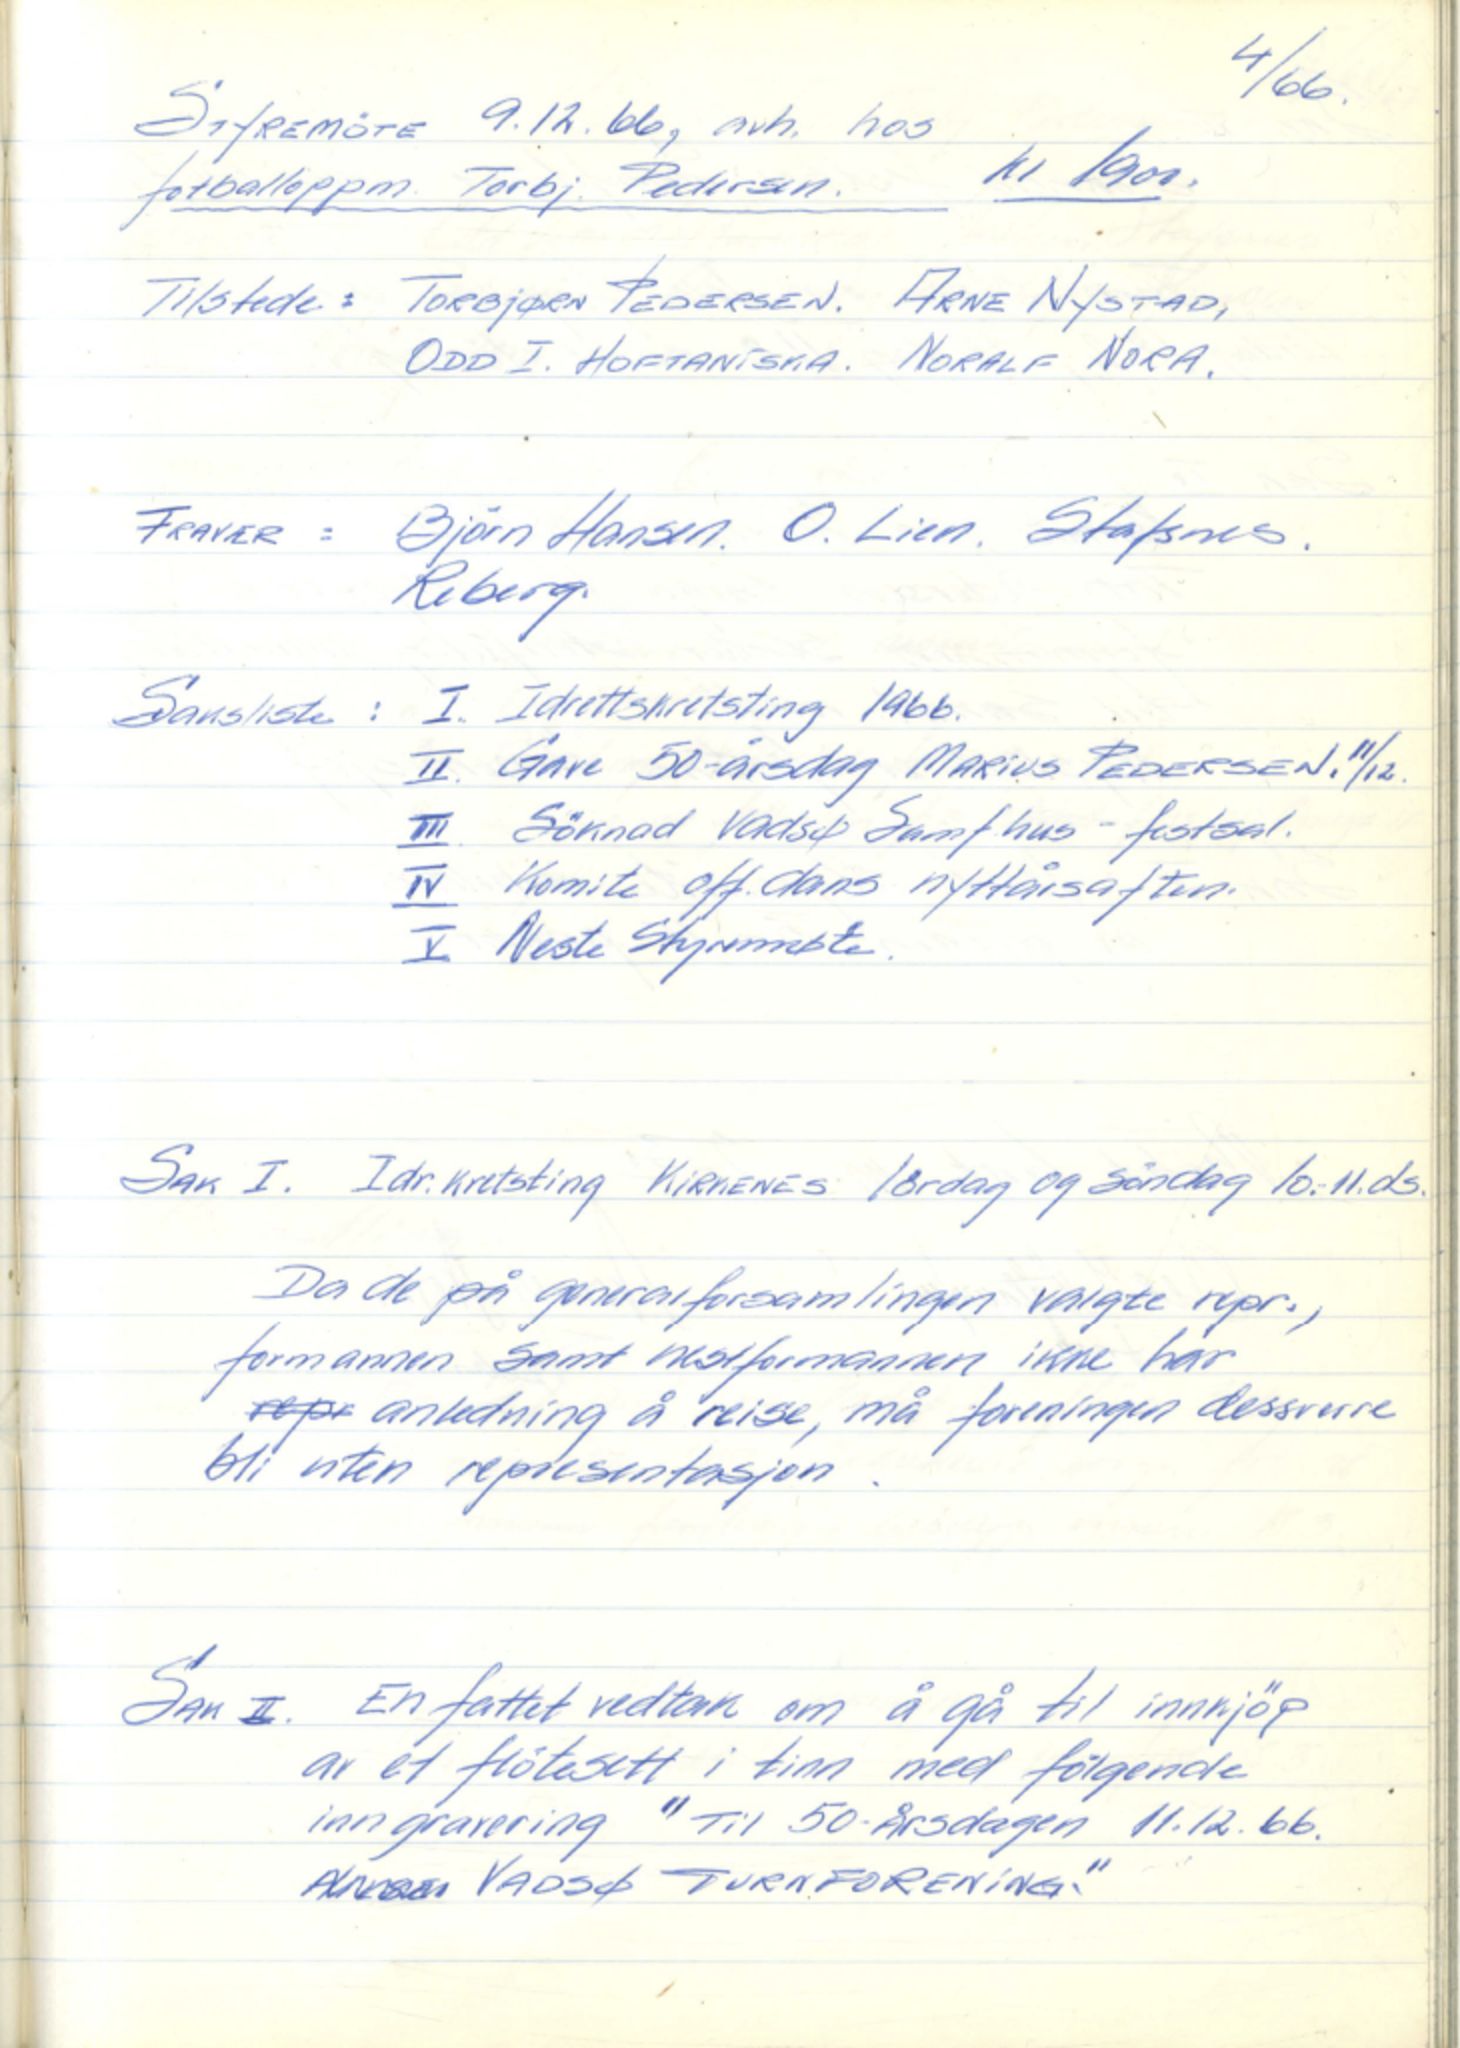 4/66.
STYREMÖTE 9.12.66, avh. hos
fotballoppm. Torbj. Pedersen. kl 1900.
Tilstede: TORBJØRN PEDERSEN. ARNE NYSTAD,
ODD I. HOFTANISKA. NORALF NORA.
FRAVÆR: Björn Hansen. O. Lien. Stafsnes.
Reberg.
Saksliste: I. Idrettskretsting 1966.
II. Gave 50-årsdag MARIUS PEDERSEN. 11/12.
III Söknad Vadsø Samf.hus - festsal.
IV Komite off. dans nyttårsaften.
V Neste Styremøte.
SAK I. Idr.kretsting KIRKENES lördag og söndag 10.-11.ds.
Da de på generalforsamlingen valgte repr.,
formannen samt nestformannen ikke har
repr anledning å reise, må foreningen dessverre
bli uten representasjon.
SAK II. En fattet vedtak om å gå til innkjöp
av et flötesett i tinn med fölgende
inngravering "Til 50-årsdagen 11.12.66.
VADSØ TURNFORENING."